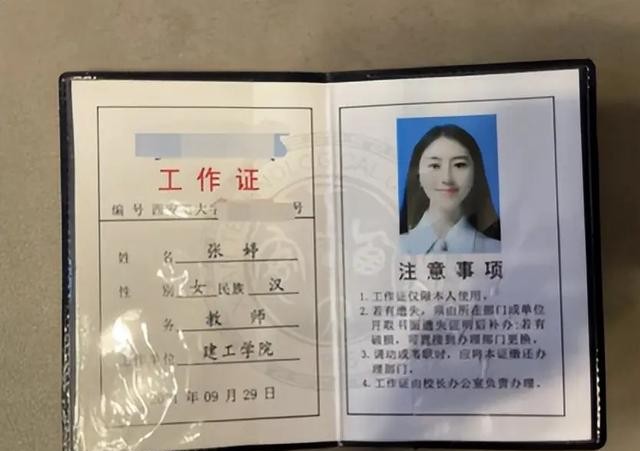 工作证
编 号 大 号
姓 名 张婷
性 别 女 民族 汉
务 教师
单位 建工学院
年 09 月 29 日
注意事项
1. 工作证仅限本人使用。
2. 若有遗失，须由所在部门或单位
开取书面遗失证明后补办；若有
破损，可直接到办理部门更换。
3. 调动或离职时，应将本证缴还办
理部门。
4. 工作证由校长办公室负责办理。